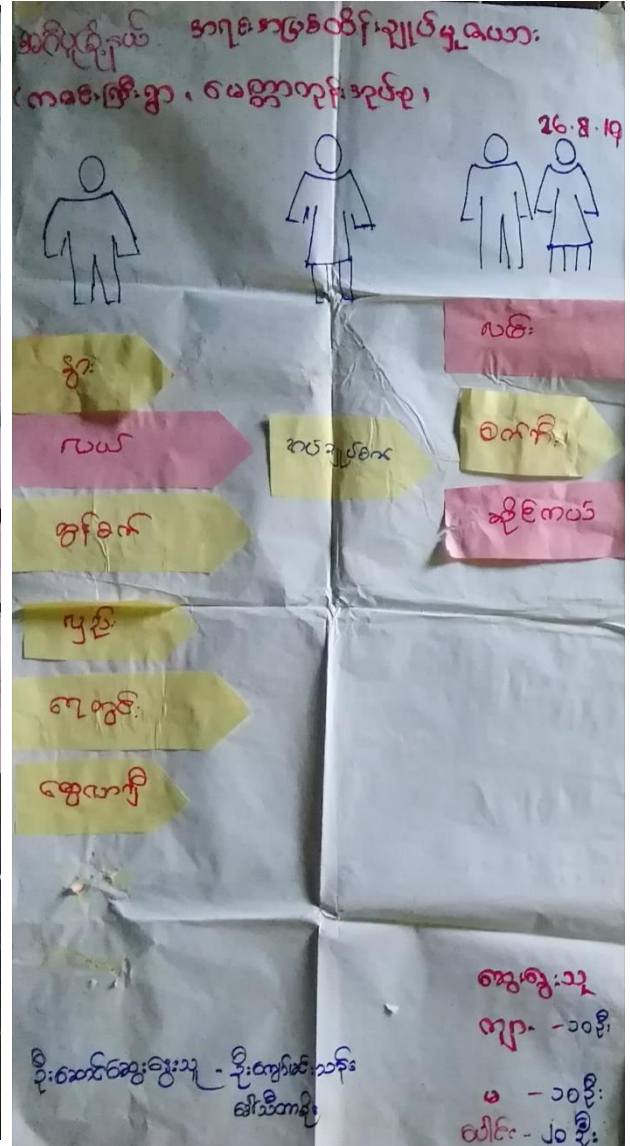 အင်္ဂပူမြို့နယ် အရင်းအမြစ်ထိန်းချုပ်မှုဇယား
(ကဇင်းကြီးရွာ၊ မေတ္တာကုန်းအုပ်စု)
26.8.19
နွား
လယ်
ထွန်စက်
လှည်း
ရေတွင်း
ဆွေလာကြီ
အပ်ချုပ်စက်
လမ်း
စက်ဘီး
ဆိုင်ကယ်
ဆွေးနွေးသူ
ကျား - ၁၀ဦး
မ - ၁၀ဦး
ပေါင်း - ၂၀ ဦး
ဦးဆောင်ဆွေးနွေးသူ - ဦးကျော်မင်းသန်း